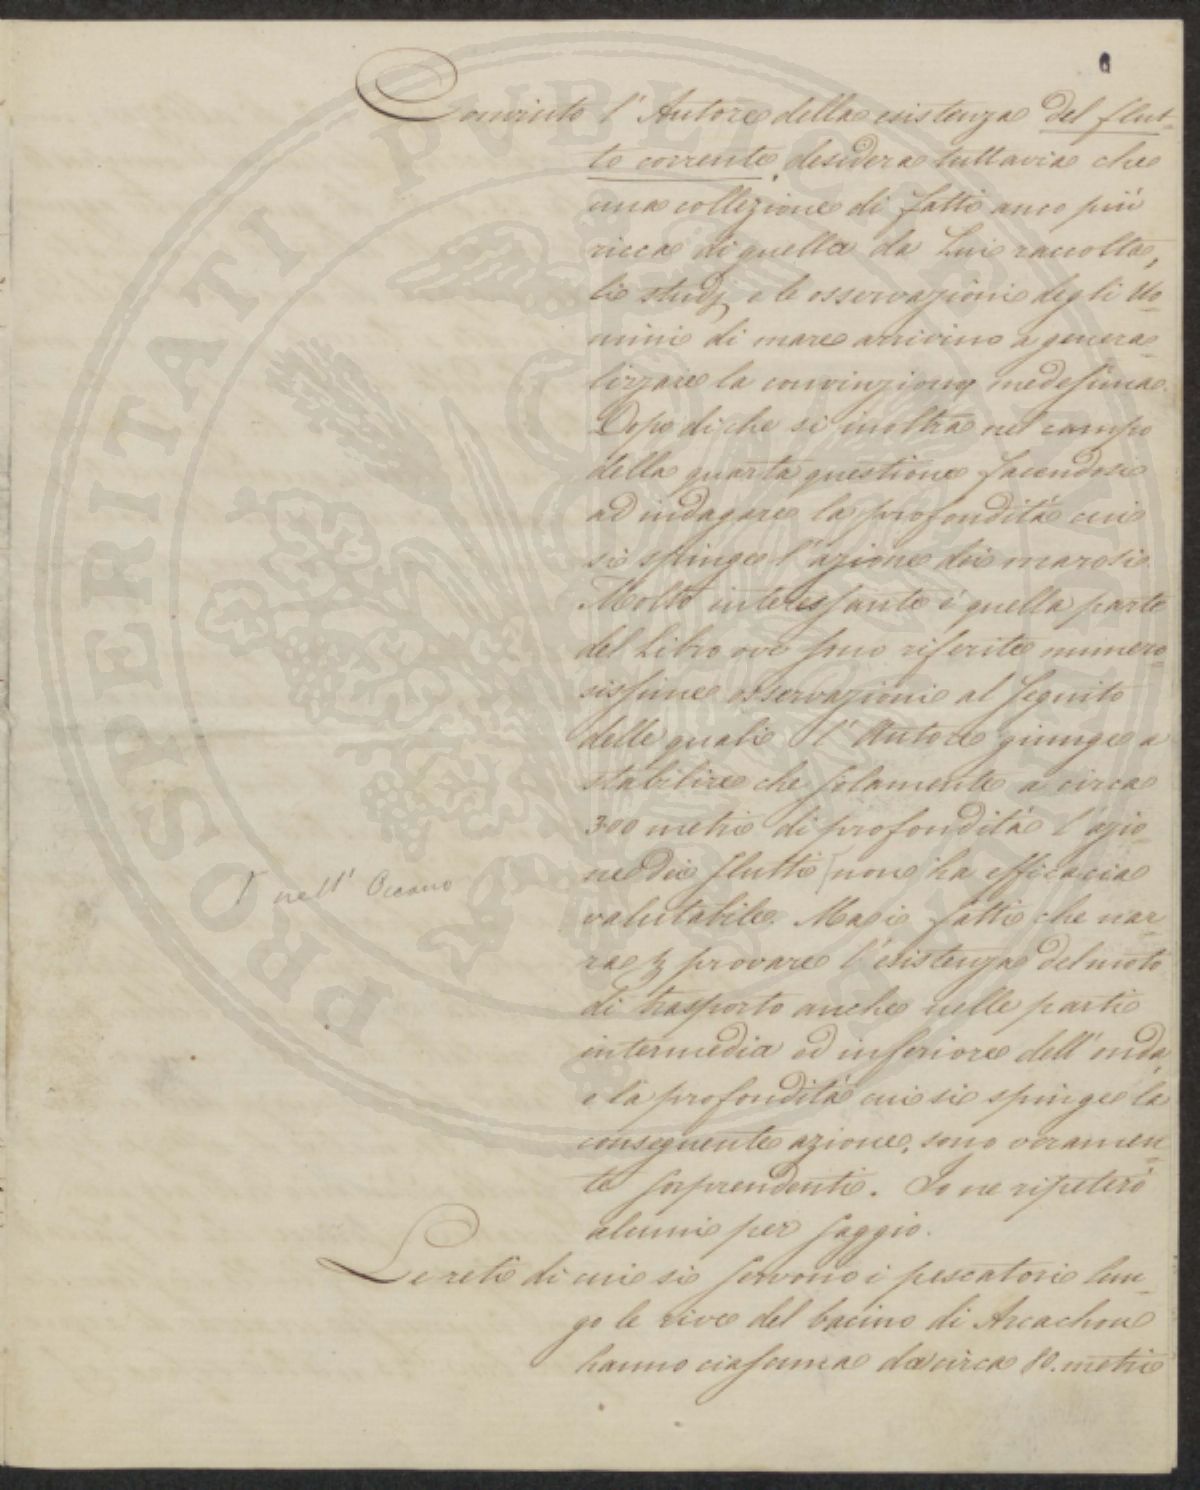 Convinto l'Autore della esistenza del flut-
to corrente, desidera tuttavia che
una collezione di fatti anco più
ricca di quella da Lui raccolta,
li studj e le osservazioni degli Uo-
mini di mare arrivino a genera-
lizzare la convinzione medesima.
Dopo di che si inoltra nel campo
della quarta questione facendosi
ad indagare la profondità cui
si spinge l'azione dei marosi.
Molto interessante è quella parte
del Libro ove sono riferite numero-
sissime osservazioni al seguito
delle quali l'Autore giunge a
stabilire che solamente a circa
300 metri di profondità l'azio-
ne dei flutti non ha efficacia
nell'Oceano
valutabile. Ma i fatti che nar-
ra provare l'esistenza del moto
di trasporto anche nelle parti
intermedia ed inferiore dell'onda,
e la profondità cui si spinge la
conseguente azione, sono veramen-
te sorprendenti. Io ne ripeterò
alcuni per saggio.
Le reti di cui si servono i pescatori lun-
go le rive del bacino di Arcachon
hanno ciascuna da circa 80. metri
PROSPERITATI PUBLICAE